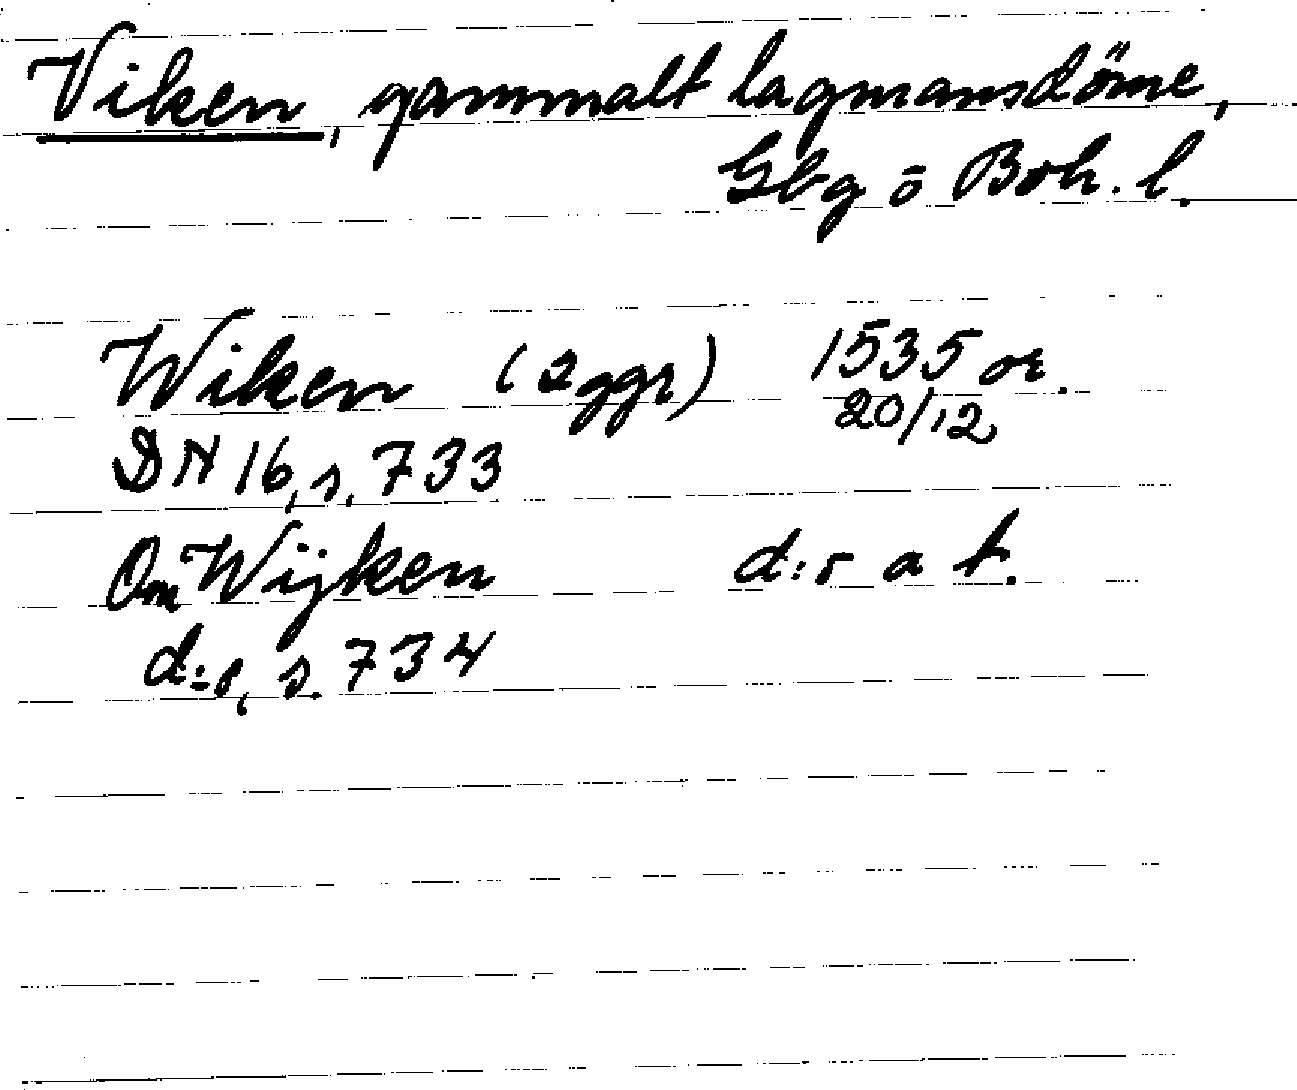 Viken, gammalt lagmansdöme,
Gbg o Boh. l.
Wiken (2 ggr) 1535 or.
20/12
DN 16, s. 733
Om Wijken d:o a st.
d:o, s. 734